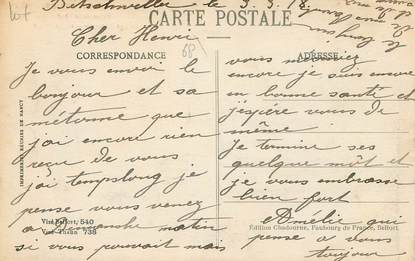 Bitschwiller le 3.3.18
CARTE POSTALE
Cher Henri
CORRESPONDANCE
ADRESSE
Je vous envoi le
bonjour et sa
m'étonne que
j'ai encore rien
reçu de vous
j'ai temps long je
pense vous venez
a Dimanche matin
si vous pouvait mais
vous
encore je suis encore
en bonne santé et
j'espère vous de
même
Je termine ses
quelque môt et
je vous embrasse
bien fort
Amélie qui
pense a vous
toujour
IMPRIMERIES RÉUNIES DE NANCY
Visé Belfort, 540
Visé Thann 738
Édition Chadourne, Faubourg de France, Belfort